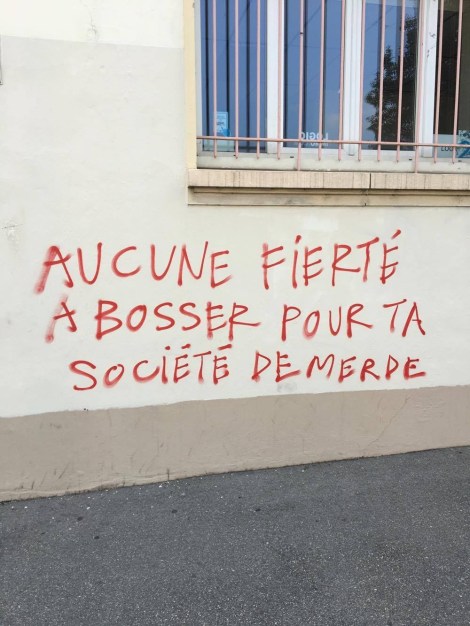 LOGIQ
AUCUNE FIERTÉ
A BOSSER POUR TA
SOCIÉTÉ DE MERDE